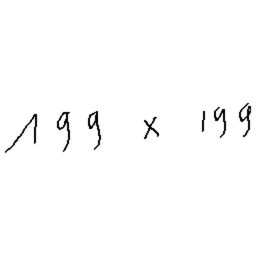 199 x 199